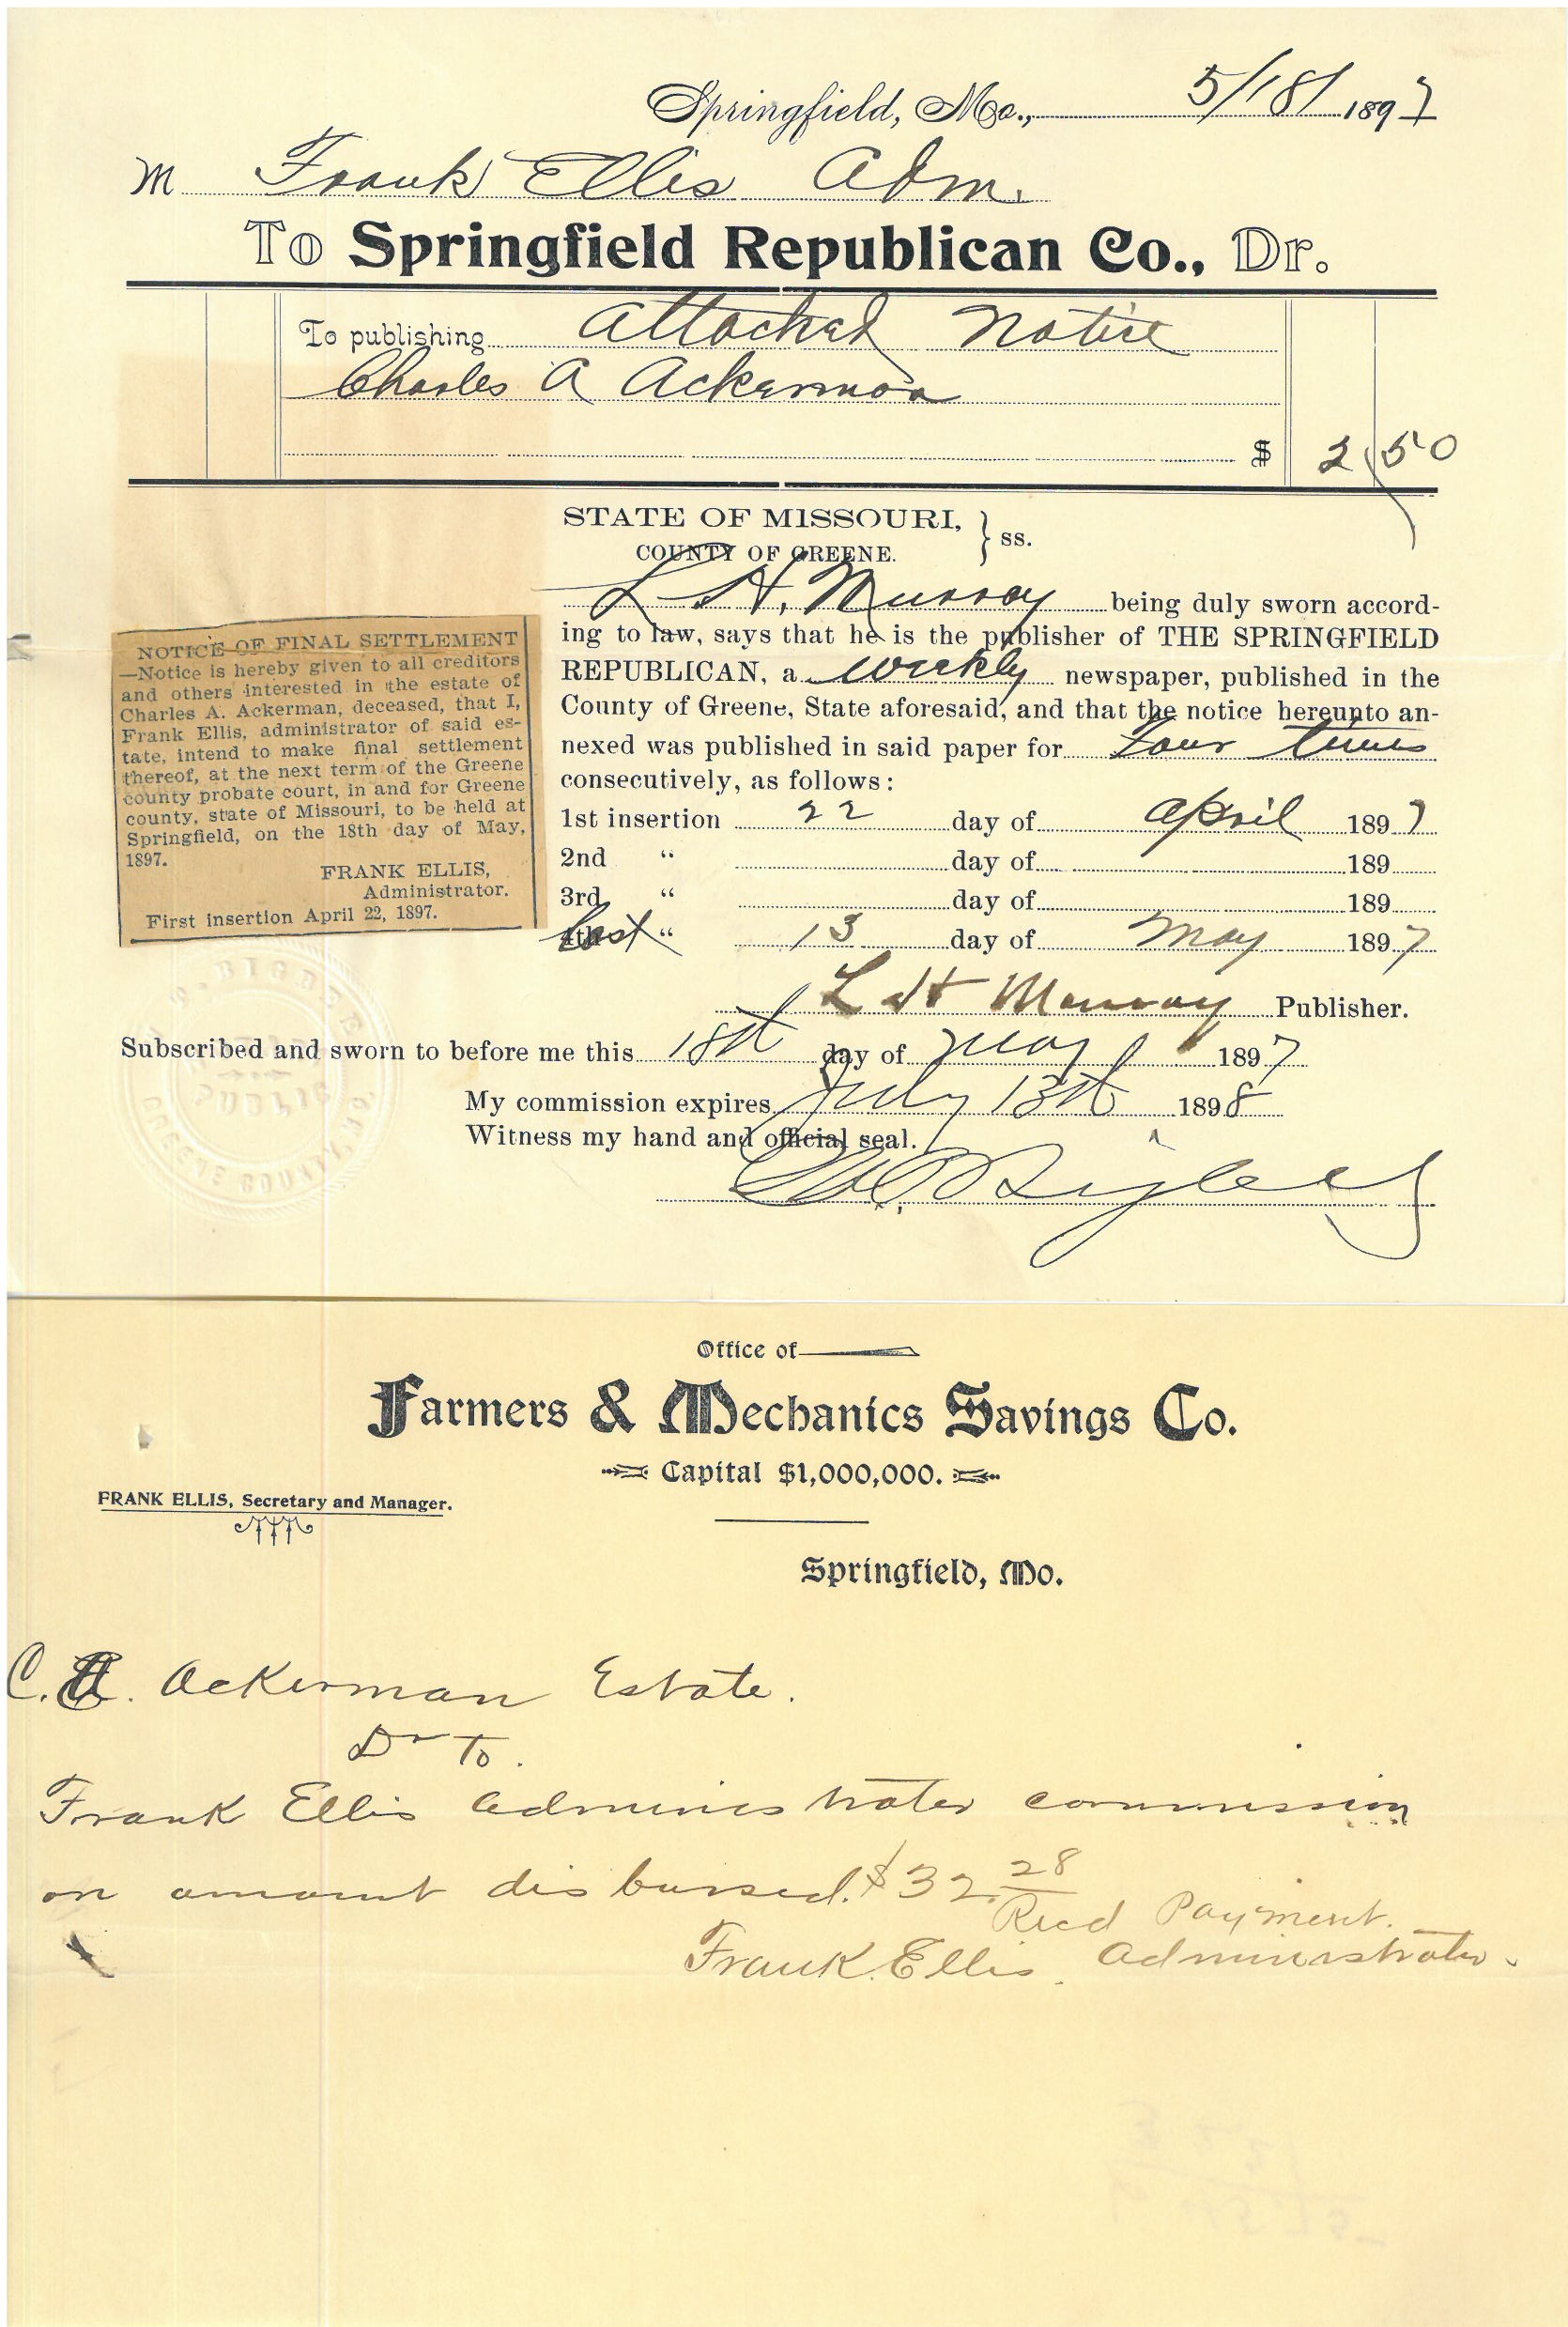 Springfield, Mo., 5/18/ 1897
M Frank Ellis Adm.
To Springfield Republican Co., Dr.
To publishing attached notice
Charles A Ackerman
$ 2 50
STATE OF MISSOURI,
COUNTY OF GREENE. } ss.
L. H. Murray being duly sworn accord-
ing to law, says that he is the publisher of THE SPRINGFIELD
REPUBLICAN, a weekly newspaper, published in the
County of Greene, State aforesaid, and that the notice hereunto an-
nexed was published in said paper for four times
consecutively, as follows:
1st insertion 22 day of April 1897
2nd " day of 189
3rd " day of 189
Last " 13 day of May 1897
L H Murray Publisher.
NOTICE OF FINAL SETTLEMENT
—Notice is hereby given to all creditors
and others interested in the estate of
Charles A. Ackerman, deceased, that I,
Frank Ellis, administrator of said es-
tate, intend to make final settlement
thereof, at the next term of the Greene
county probate court, in and for Greene
county, state of Missouri, to be held at
Springfield, on the 18th day of May,
1897.
FRANK ELLIS,
Administrator.
First insertion April 22, 1897.
Subscribed and sworn to before me this 18th day of May 1897
My commission expires July 13th 1898
Witness my hand and official seal.
Bigbee
PUBLIC
GREENE COUNTY
Office of
Farmers & Mechanics Savings Co.
Capital $1,000,000.
FRANK ELLIS, Secretary and Manager.
Springfield, Mo.
C. A. Ackerman Estate.
Dr To.
Frank Ellis administrator commission
on amount disbursed. $32.28
Recd Payment.
Frank Ellis. Administrator.